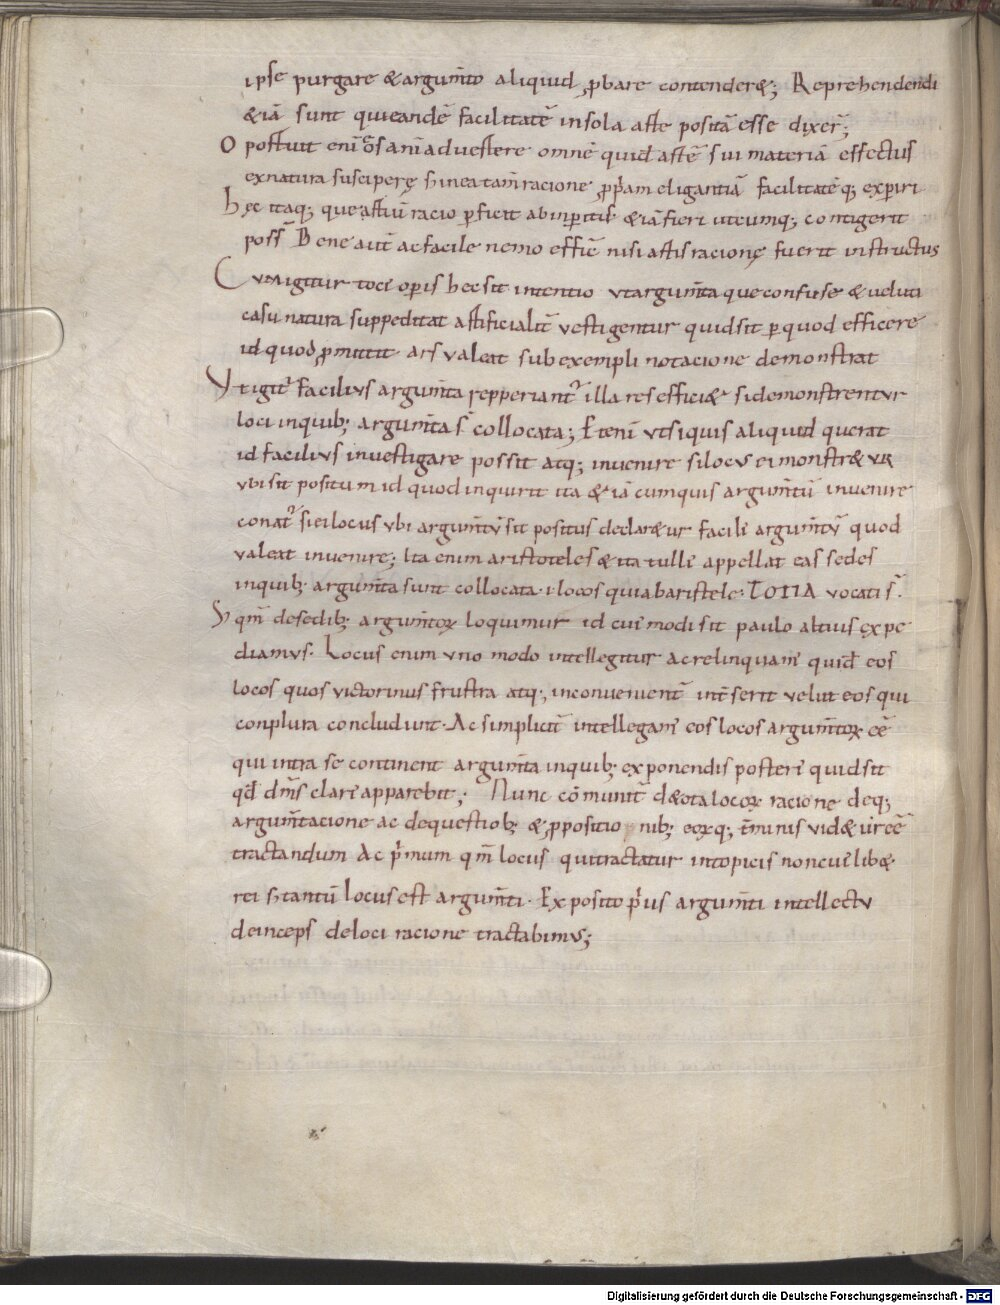 ipse purgare &argum̄to aliquid ꝓbare contender&; Reprehendendi
&iā sunt quieandē facilitatē insola arte positā esse dixer̄;
Oportuit eni os animaduertere omnē quidē artē sui materiā effectus
exnatura suscipere s; inea tam̄ racione ꝓp̄am eligantiā facilitatēq; experiri
hęc itaq; que artiū racio ꝑficit abinꝑitis &iā fieri uteumq; contigerit
poss̄ Bene aut̄ acfacile nemo effic̄ nisi artis racionę fuerit instructus
Cum igitur toci oꝑis hec sit intentio ut argum̄ta que confuse & ueluti
casu natura suppeditat artificialit̄ vestigentur quid sit ꝑquod efficere
id quod ꝓmittit ars valeat sub exempli notacione demonstrat
Vt igit̄ facilius argum̄ta repperiant̄ illa res effici& si demonstrentur
loci inquib; argum̄ta s̄ collocata; Eteni ut siquis aliquid querat
id facilius investigare possit atq; invenire si locus ei monstr&ur
ubi sit positum id quod inquirit ita &iā cumquis argum̄tū invenire
conat̄ siei locus ubi argum̄tū sit positus declar&ur facile argum̄tū quod
valeat invenire; Ita enim aristoteles & ita tulli appellat eas sedes
inquib; argum̄ta sunt collocata i locos quia abaristele ΤΟΠΙΑ vocati s̄.
S; qm̄ desedib; argum̄toꝝ loquimur id cui modi sit paulo altius expe
diamus. Locus enim uno modo intellegitur ac relinquam quidē eos
locos quos victorinus frustra atq; inconvenient̄ int̄serit velut eos qui
conplura concludunt. Ac simplicit̄ intellegam eos locos argum̄toꝝ eē
qui intra se continent argum̄ta inquib; exponendis posteri quid sit
qd̄ dīms clari apparebit; Nunc cōmunit̄ d&ota locoꝝ racione deq;
argum̄tacione ac de questiōb; & ꝓpositionib; eoꝝq; t̄minis vid&ur eē
tractandum Ac p̄mum qm̄ locus qui tractatur intopicis non cui lib&
rei s; tantū locus est argum̄ti. Exposito p̄us argum̄ti intellectu
deinceps deloci racione tractabimus;
Digitalisierung gefördert durch die Deutsche Forschungsgemeinschaft - DFG